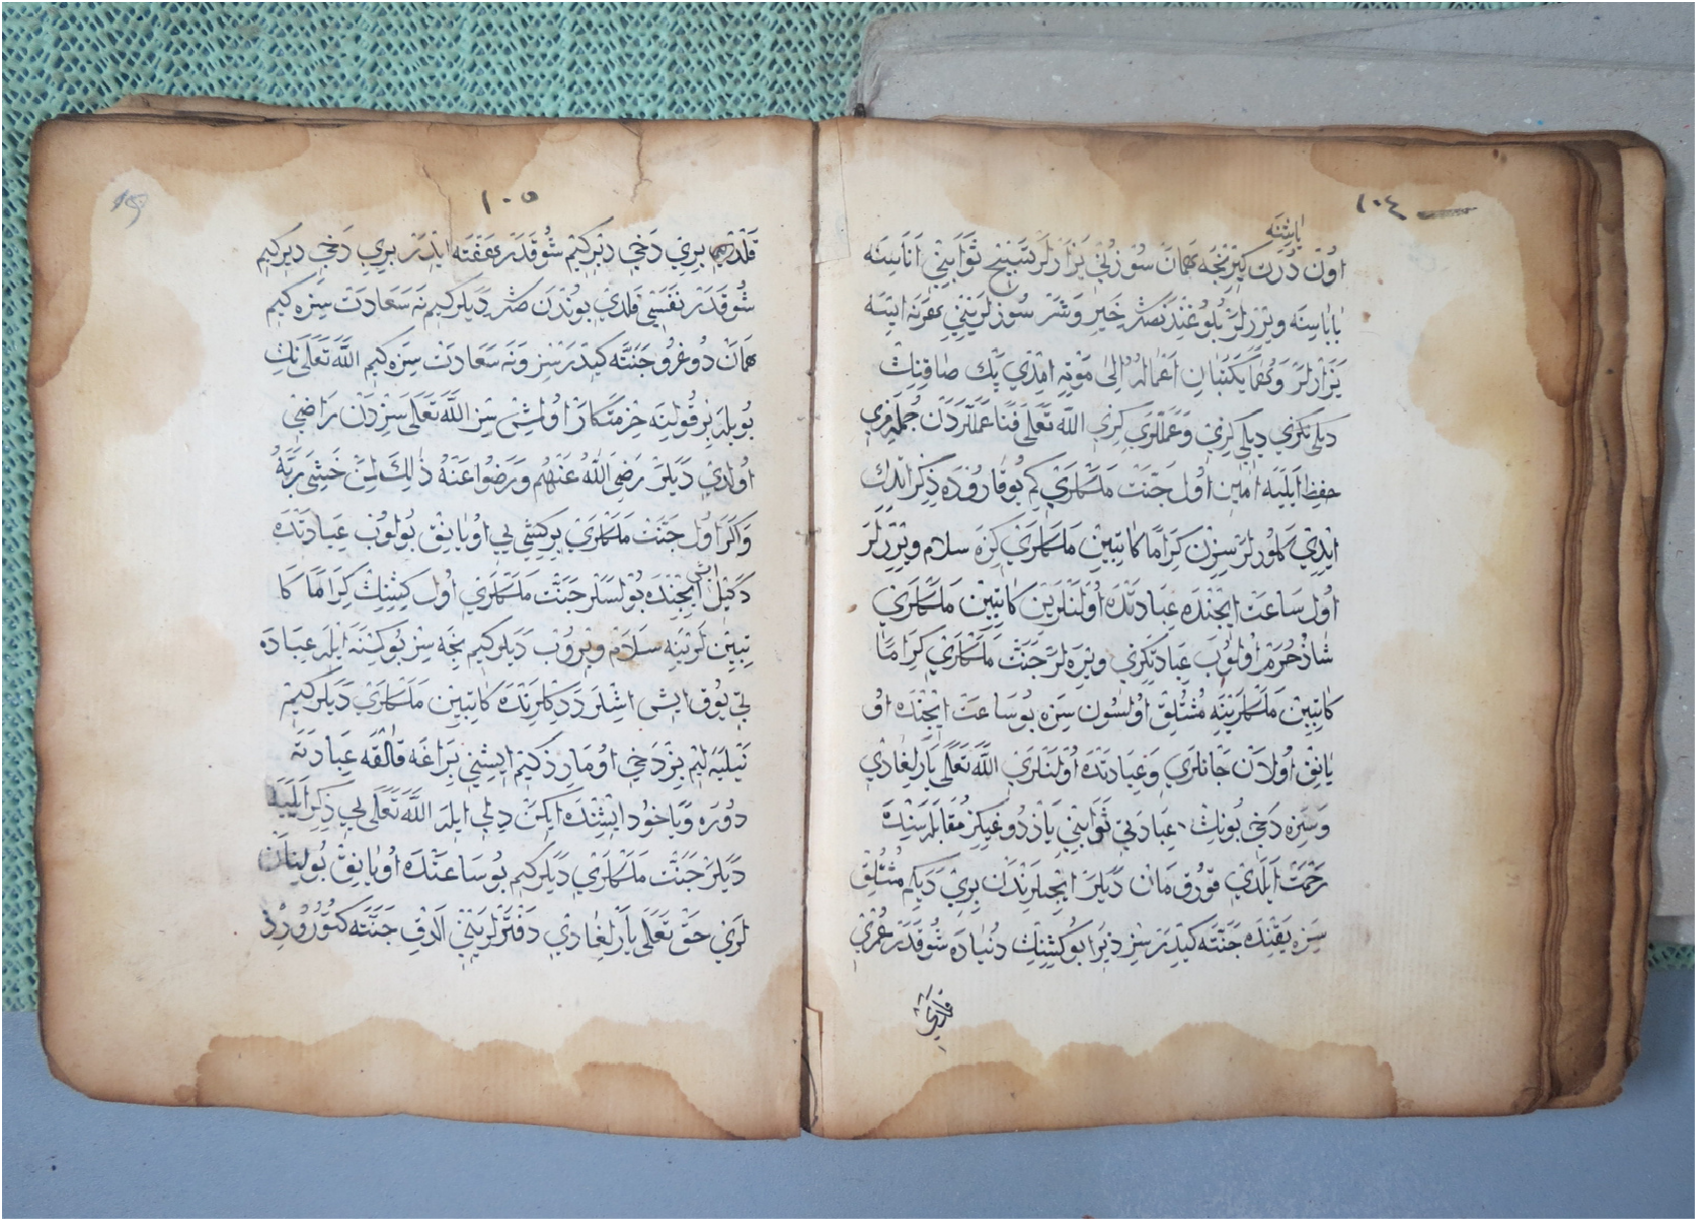 ١٠٤
ياشينه
اون درت كيرنجه همان سوزني يزارلر تسبيح ثوابيني اناسينه
باباسينه ويررلر بلوغندنصكره خير وشر سوزلرينني عمرينه ايتينه
يزارلر وهما يكتبان اعماله الى موته امدي پك صاقنك
دلكزي ديلكزي وعمللركزي الله تعلى فنا عمللردن جمله مزي
حفظ ايليه امين اول جنت ملكلري كم يوقاروده ذكر اتدك
ايدي كلورلر سزن كراما كاتبين ملكلركزه سلام ويررلر
اول ساعت ايچنده عبادتده اولنلرين كاتبين ملكلري
شاذ حرم اولوب عبادتكزي ويره لر جنت ملكلري كراما
كاتبين ملكلرينه مشتلق اولسون سزه بوساعت ايچنده او
يانق اولان جانلري وعبادتده اولنلري الله تعلى يارلغادي
وسزه دخي بونك عبادتي ثوابيني يازدوغيكز مقابله سنده
رحمت ايلدي قورقمان ديلر ايچلرندن بري ديكم مشتلق
سزه يقنده جنته كيدرسز زيرا بوكشنك دنياده شوقدر عمري
قلدي
١٠٥
قلدي بري دخي ديركيم شوقدر هفته ايدر بري دخي ديركيم
شوقدر نفسي قلدي بوندن صكره ديلركيم نه سعادت سزه كيم
همان دوغرو جنته كيدرسز ونه سعادت سزه كيم الله تعلى نك
بويله بر قولينه خزمتكار اولمش سز الله تعلى سزدن راضي
اولدي ديلر رضي الله عنهم ورضوا عنه ذلك لمن خشي ربه
واكر اول جنت ملكلري بركشي يي اويانق بولوب عبادتده
دكيل اش ايچنده بولسلر جنت ملكلري اول كشينك كراما كا
تبين لرينه سلام ويروب ديلركيم نجه سز بوكسنه ايلر عباده
تي يوق ايش اشلر ددكلرنده كاتبين ملكلري ديلركيم
نيليه ليم بزدخي اومارزكيم ايشيني براغه قالقه عبادته
دوره ويا خود ايشنده ايكن ديلي ايله الله تعلى يي ذكر ايليه
ديلر جنت ملكلري ديلركيم بوساعتده اويانق بولينان
لري حق تعلى يارلغادي دفترلرينني الدق جنته كتورورز